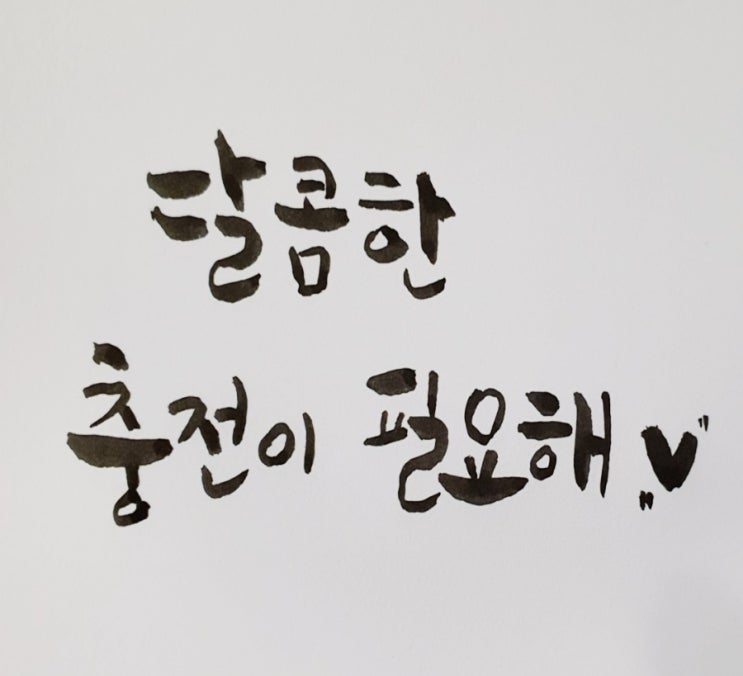 달콤한
충전이 필요해♥